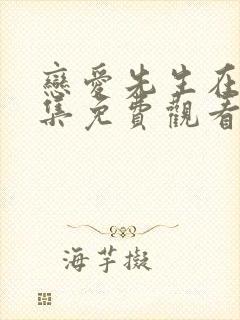 戀愛先生在
集免費觀看
海芋擬